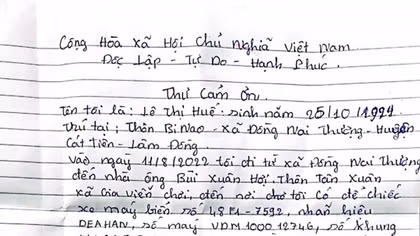 Cộng Hòa Xã Hội Chủ Nghĩa Việt Nam
Độc Lập - Tự Do - Hạnh Phúc.
Thư Cảm Ơn.
Tên tôi là: Lê Thị Huế. Sinh năm 25/10/1991
Trú tại: Thôn Bi Nao - Xã Đồng Nai Thượng - Huyện
Cát Tiên - Lâm Đồng.
Vào ngày 11/8/2022 tôi đi từ xã Đồng Nai Thượng
đến nhà ông Bùi Xuân Hợi. Thôn Tân Xuân
xã Gia Viễn chơi, đến nơi chơ tôi có để chiếc
xe máy biển số 48M-7592, nhãn hiệu
DEAHAN, số máy VDM100012746, số khung